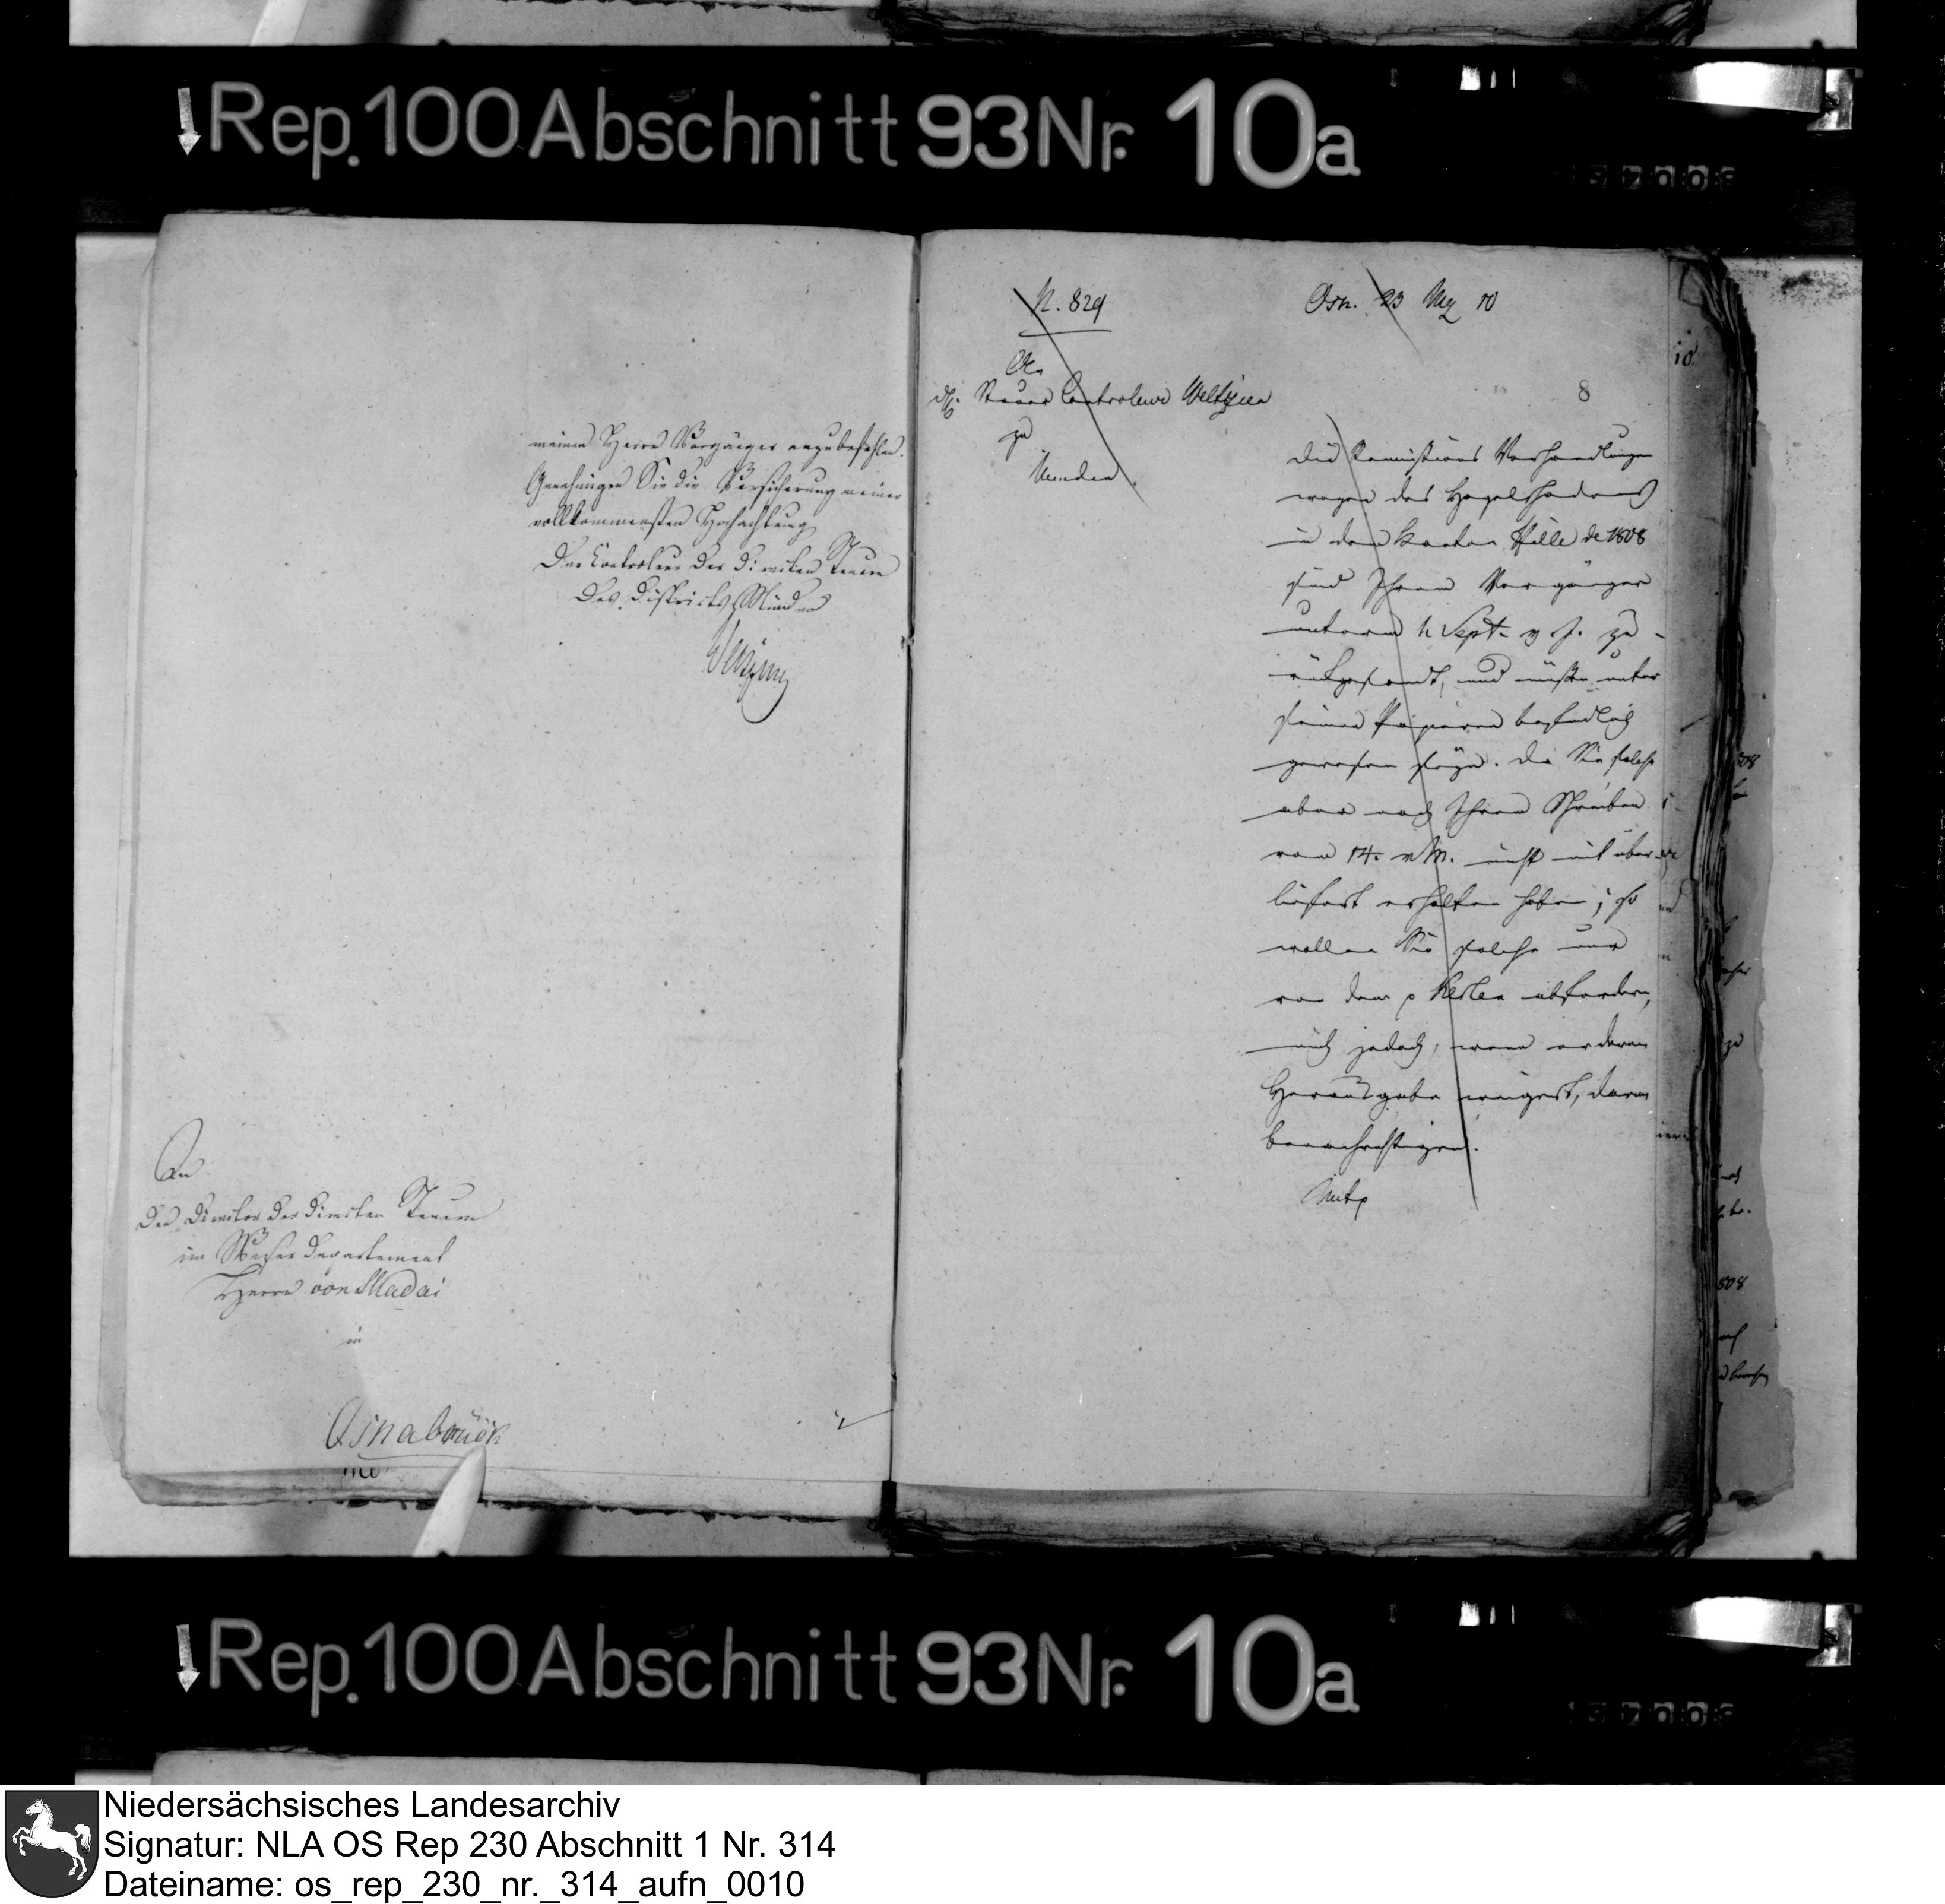 Rep. 100 Abschnitt 93 Nr. 10a
meinen Herrn Vorgänger anzubefehlen.
Genehmigen Sie die Versicherung meiner
vollkommensten Hochachtung
Der Controleur der directen Steuern
des Districts Minden
An
den Director der directen Steuern
im Weser Departement
Herrn von Madai
in
Osnabrück
N. 829
Osn. 23 May 10
An
Steuer Controleur Weltzien
zu
Minden.
8
Die Remissions Verhandlungen
wegen des Hagelschadens
in dem Kanton Hille de 1808
sind Ihrem Vorgänger
unterm Sept. v. J. zu-
rükgesandt, und müßen unter
seinen Papieren befindlich
gewesen seyn. Da Sie solche
aber nach Ihrem Schreiben
vom 14. v. M. nicht mit über-
liefert erhalten haben; so
wollen Sie solche nur
von dem p abfordern,
mich jedoch, wenn er deren
Herausgabe weigert, davon
benachrichtigen.
Rep. 100 Abschnitt 93 Nr. 10a
Niedersächsisches Landesarchiv
Signatur: NLA OS Rep 230 Abschnitt 1 Nr. 314
Dateiname: os_rep_230_nr._314_aufn_0010